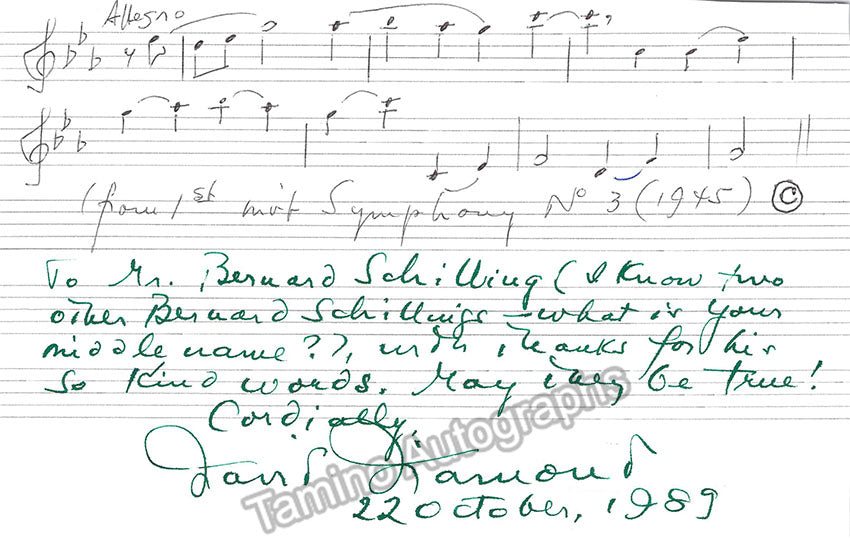 Allegro
(from 1st mvt Symphony No 3 (1945) ©
To Mr. Bernard Schilling (I know two
other Bernard Schillings – what is your
middle name??), with thanks for his
so kind words. May they be true!
Cordially,
David Diamond
22 October, 1989
Tamino Autographs